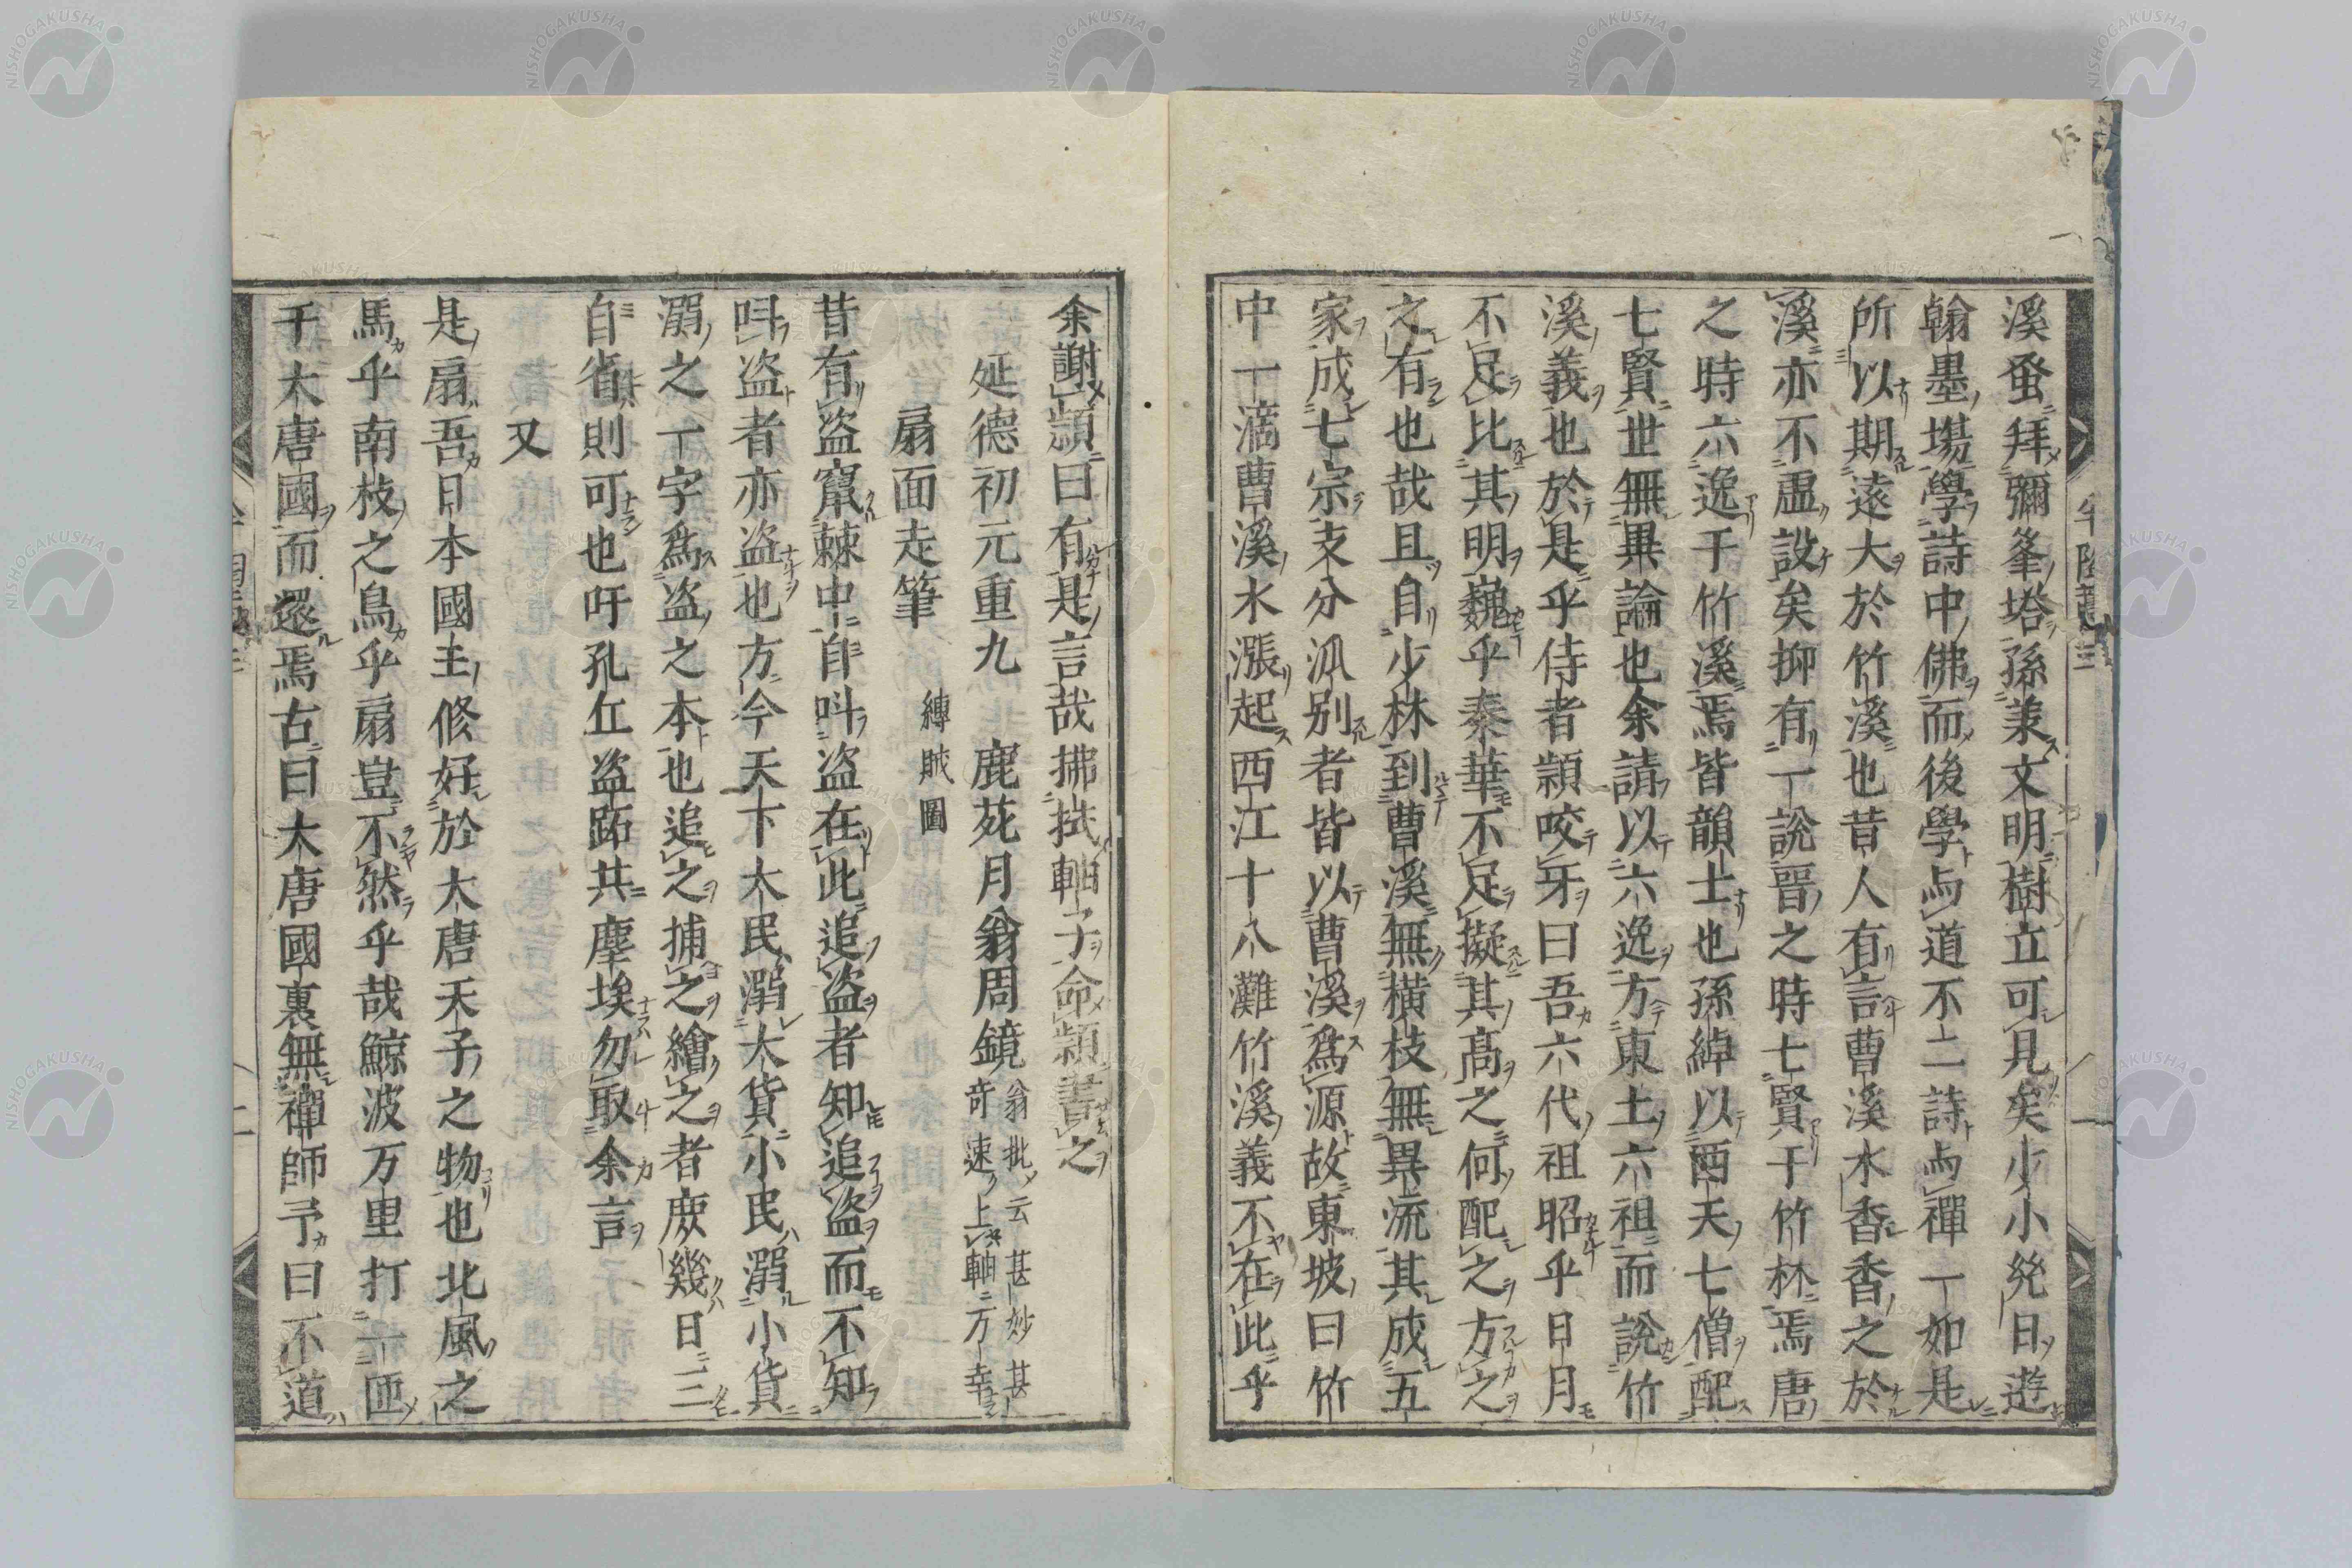 溪蚤拜彌峯塔孫兼文明樹立可見矣少小纔日遊
翰墨塲學詩中佛而後學與道不二詩與禪一如是
所以期遠大於竹溪也昔人有言曹溪水香香之於
溪亦不虛設矣抑有一說晉之時七賢于竹林焉唐
之時六逸于竹溪焉皆韻士也孫綽以西天七僧配
七賢世無異論也余請以六逸方東土六祖而說竹
溪義也於是乎侍者顈咬牙曰吾六代祖昭乎日月
不足比其明巍乎泰華不足擬其高之何配之方之
之有也哉且自少林到曹溪無橫枝無異流其成五
家成七宗支分派別者皆以曹溪爲源故東坡曰竹
中一滴曹溪水漲起西江十八灘竹溪義不在此乎
余謝顈曰有是言哉拂拭軸子命顈書之
延德初元重九　鹿苑月翁周鏡 翁批云甚妙甚 奇速上軸万幸
扇面走筆　縛賊圖
昔有盜竄棘中自呌盜在此追盜者知追盜而不知
呌盜者亦盜也方今天下大民溺大貨小民溺小貨
溺之一字爲盜之本也追之捕之繪之者庶幾日三
自省則可也吁孔丘盜跖共塵埃勿取余言
又
是扇吾日本國主修好於大唐天子之物也北風之
馬乎南枝之鳥乎扇豈不然乎哉鯨波万里打一匝
于大唐國而還焉古曰大唐國裏無禪師予曰不道